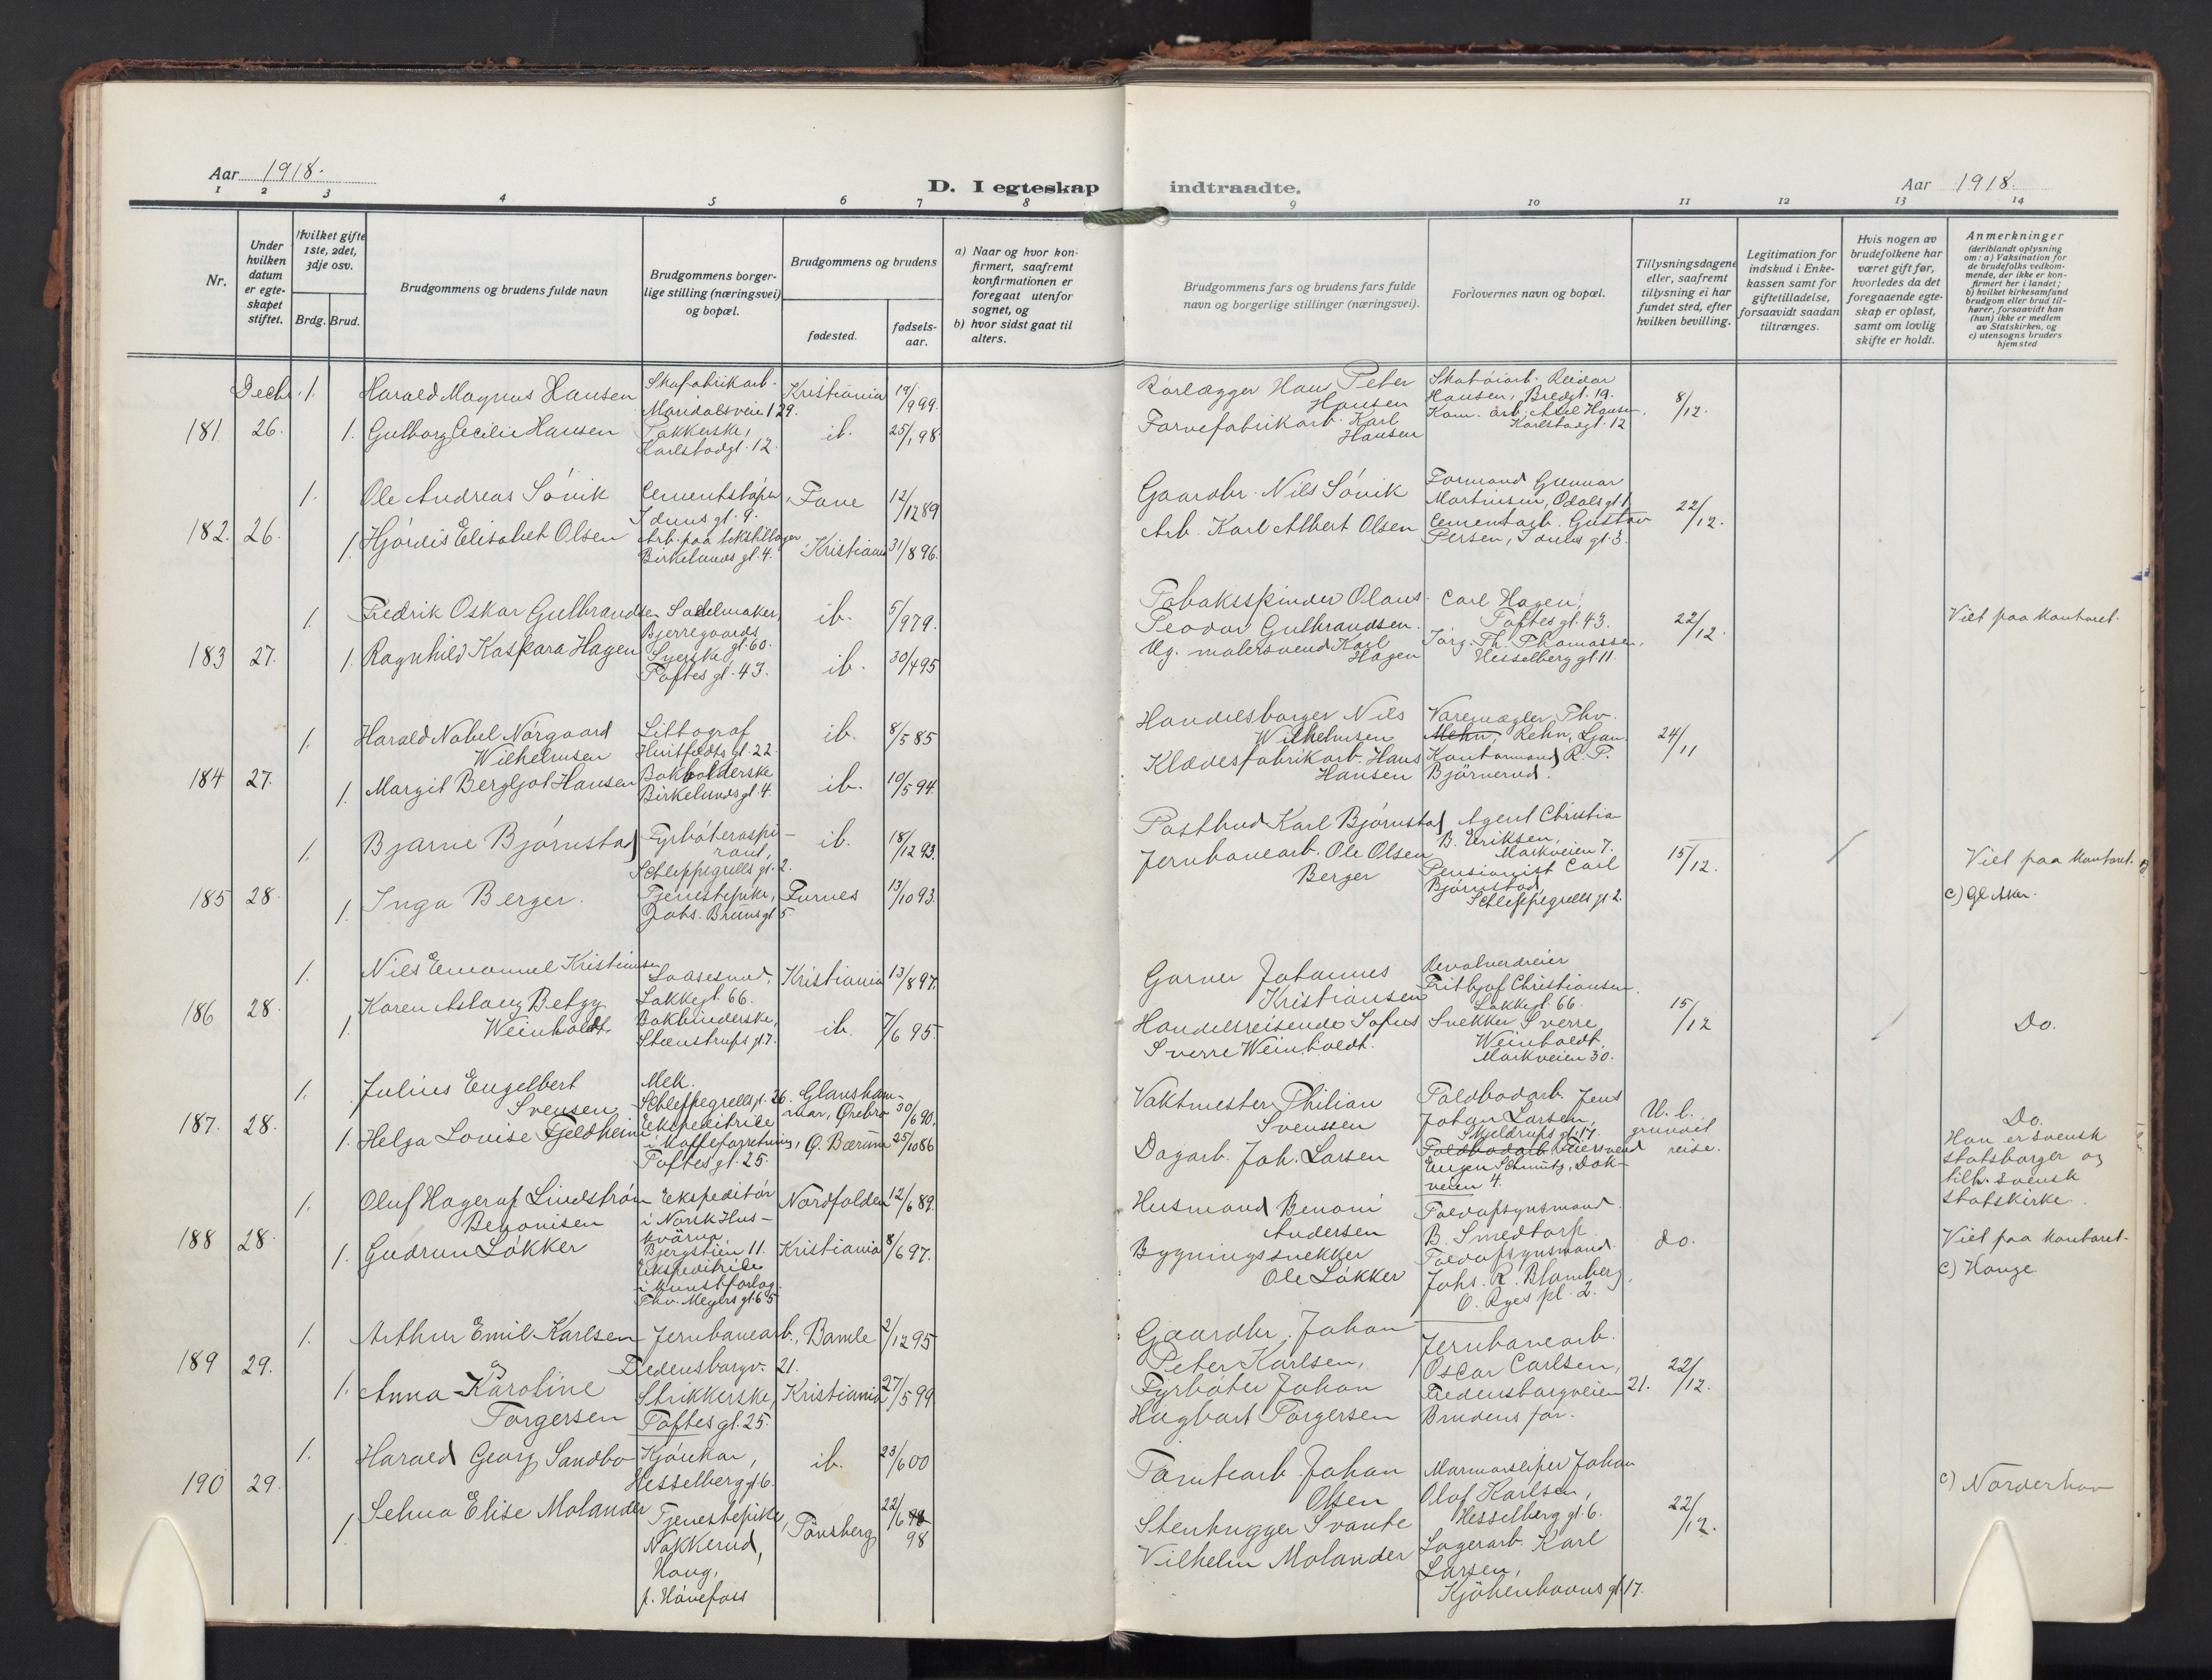 Aar 1918.
D. I egteskap indtraadte.
Aar 1918.
1 2 3 4 5 6 7 8 9 10 11 12 13 14
Nr.
Under hvilken datum er egteskapet stiftet.
Hvilket gifte 1ste, 2det, 3dje osv.
Brdg. Brud.
Brudgommens og brudens fulde navn
Brudgommens borgerlige stilling (næringsvei) og bopæl.
Brudgommens og brudens
fødested.
fødselsaar.
a) Naar og hvor konfirmert, saafremt konfirmationen er foregaat utenfor sognet, og
b) hvor sidst gaat til alters.
Brudgommens fars og brudens fars fulde navn og borgerlige stillinger (næringsvei).
Forlovernes navn og bopæl.
Tillysningsdagene eller, saafremt tillysning ei har fundet sted, efter hvilken bevilling.
Legitimation for indskud i Enkekassen samt for giftetilladelse, forsaavidt saadan tiltrænges.
Hvis nogen av brudefolkene har været gift før, hvorledes da det foregaaende egteskap er opløst, samt om lovlig skifte er holdt.
Anmerkninger
(deriblandt oplysning om: a) Vaksination for de brudefolks vedkommende, der ikke er konfirmert her i landet; b) hvilket kirkesamfund brudgom eller brud tilhører, forsaavidt han (hun) ikke er medlem av Statskirken, og c) utensogns bruders hjemsted
Decbr. 1. Harald Magnus Hansen
Skofabrikarb.
Maridalsveie 129.
Kristiania 19/999.
Rørlægger Hans Peter
Hansen
Skotøiarb. Reidar
Hansen, Bredgt. 19.
8/12.
181 26. 1. Gulborg Cecilie Hansen
Pakkerske,
Karlstadgt. 12.
ib. 25/1 98.
Farvefabrikarb. Karl
Hansen
Kom. arb. Axel Hansen,
Karlstadgt. 12
1. Ole Andreas Sövik
Cementstøper,
Iduns gt. 9.
Fane 12/1289
Gaardbr. Nils Sövik
Formand Gunnar
Martinsen, Odals gt. 1
22/12.
182. 26. 1. Hjørdis Elisabet Olsen
Arb. paa tekstillager
Birkelunds gt. 4.
Kristiania 31/896.
Arb. Karl Albert Olsen
Cementarb. Gustav
Persen, Iduns gt. 3.
1. Fredrik Oskar Gulbrandsen
Sadelmaker,
Bjerregaards
gt. 60.
ib. 5/979.
Tobaksspinder Olaus
Teodor Gulbrandsen.
Carl Hagen,
Toftes gt. 43.
22/12.
Viet paa kontoret.
183 27. 1. Ragnhild Kaspara Hagen
Syerske,
Toftes gt. 43.
ib. 30/495
Ug. malersvend Karl
Hagen
Jørg. Th. Thomassen,
Hesselberg gt. 11.
1. Harald Nobel Nørgaard
Wilhelmsen
Littograf
Huitfeldts gt. 22
ib. 8/585
Handelsborger Nils
Wilhelmsen
Varemægler Thv.
Mehn, Rehn, Ljan.
24/11
184 27. 1. Margit Bergljot Hansen
Bokholderske
Birkelunds gt. 4.
ib. 10/594.
Klædesfabrikarb. Hans
Hansen
Kontormand R. P.
Bjørnerud.
1. Bjarne Bjørnstad
Fyrbøteraspirant,
Schleppegrells gt. 2.
ib. 18/1293.
Postbud Karl Bjørnstad
Agent Christia
B. Eriksen,
Markveien 7.
15/12.
Viet paa kontoret.
185 28. 1. Inga Berger.
Tjenestepike,
Johs. Bruns gt 5
Furnes 13/1093.
Jernbanearb. Ole Olsen
Berger
Pensionist Carl
Bjørnstad,
Schleppegrells gt 2.
c) Gl. Aker.
1. Nils Emanuel Kristiansen
Laasesmed,
Lakkegt. 66.
Kristiania 13/897.
Garver Johannes
Kristiansen
Revolverdreier
Fritbjof Christiansen.
Lakkegt. 66.
15/12
186 28. 1. Karen Aslaug Betzy
Weinholdt
Bokbinderske,
Steenstrups gt. 7.
ib. 7/6 95.
Handelsreisende Sofus
Sverre Weinholdt.
Snekker Sverre
Weinholdt,
Markveien 30.
Do.
1. Julius Engelbert
Svensen
Mek.
Schleppegrells gt. 26.
Glanshammar, Ørebro 30/690.
Vaktmester Philian
Svenssen
Toldbodarb. Jens
Johan Larsen,
Skjeldrups gt. 17.
U. l.
grundet
reise.
187. 28. 1. Helga Lovise Fjeldheim
Ekspeditrice
i Kaffeforretning,
Toftes gt. 25.
Ø. Bærum 25/1086
Dagarb. Joh. Larsen
Toldbodarb. Feiersvend
Eugen Schmutz, Dokveien 4.
Do.
Han er svensk
statsborger og
tilh. svensk
statskirke.
1. Oluf Hagerup Lindstrøm
Benonisen
Ekspeditør
i Norsk Huskvärna
Bjergstien 11.
Nordfolden 12/689.
Husmand Benoni
Andersen
Toldopsynsmand
B. Smedtorp.
do.
188 28. 1. Gudrun Løkker
Ekspeditrice
i kunstforlag.
Thv. Meyers gt. 65
Kristiania 8/697.
Bygningssnekker
Ole Løkker
Toldopsynsmand
Johs. R. Blomberg,
O. Ryes pl. 2.
Viet paa kontoret.
c) Hauge
1. Arthur Emil Karlsen
Jernbanearb.,
Fredensborgv. 21.
Bamle 2/1295
Gaardbr. Johan
Peter Karlsen,
Jernbanearb.
Oscar Carlsen,
Fredensborgveien 21.
22/12.
189 29. 1. Anna Karoline
Torgersen
Strikkerske,
Toftes gt. 25.
Kristiania 27/599.
Fyrbøter Johan
Hagbart Torgersen
Brudens far.
1. Harald Georg Sandbo
Kjørekar,
Hesselberg gt 6.
ib. 23/600
Tomtearb. Johan
Olsen
Marmorsliper Johan
Olaf Karlsen,
Hesselberg gt. 6.
22/12.
190 29. 1 Selma Elise Molander
Tjenestepike,
Nakkerud,
Haug,
p. Hønefoss
Tønsberg 22/6 98
Stenhugger Svante
Vilhelm Molander
Lagerarb. Karl
Larsen,
Kjøbenhavns gt. 17.
c) Norderhov